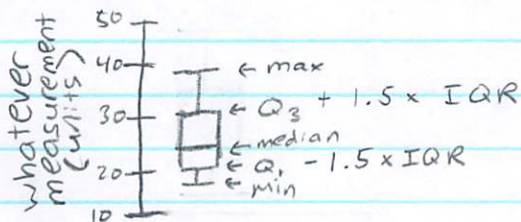 whatever
measurement
(units)
50
40
30
20
10
← max
← Q3 + 1.5 x IQR
← median
← Q1 - 1.5 x IQR
← Min